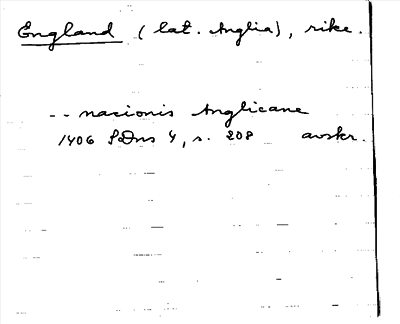 England (lat. Anglia), rike.
-- nacionis Anglicane
1406 SDns 4, s. 208 avskr.